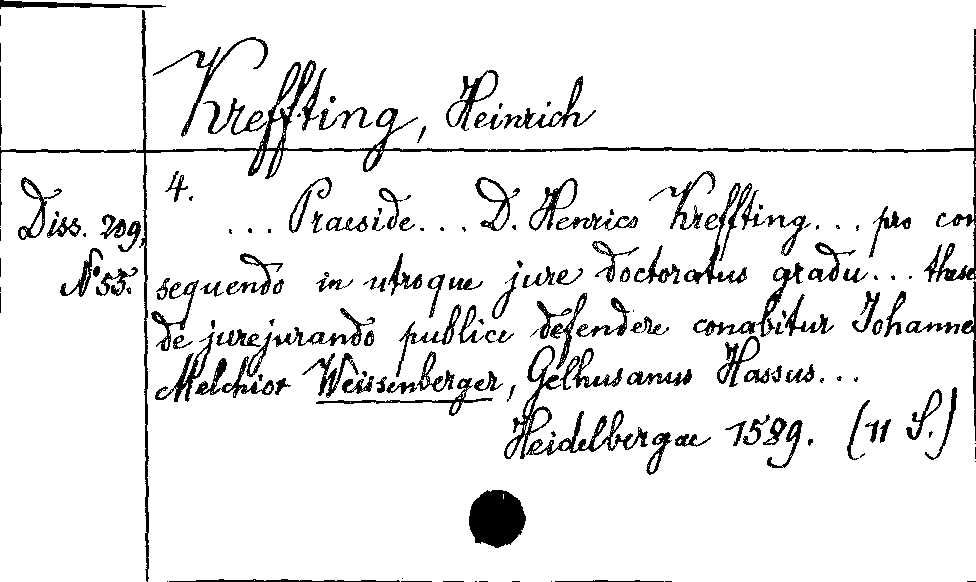 Kreffting, Heinrich
4.
Diss. 209,
N° 55.
... Praeside ... D. Henrico Kreffting ... pro con
sequendo in utroque jure doctoratus gradu ... these
de jurejurando publice defendere conabitur Johanne
Melchior Weissenberger, Gelhusanus Hassus ...
Heidelbergae 1589. (11 S.)